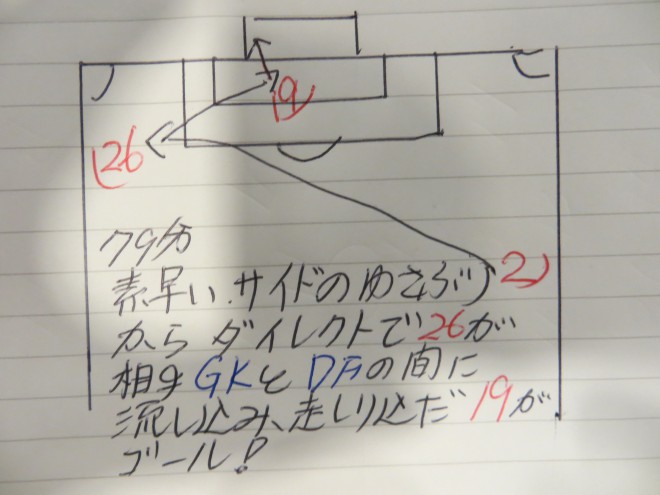 19
26
2
79分
素早い、サイドのゆさぶり
からダイレクトで26が
相手GKとDFの間に
流し込み、走り込だ19が
ゴール!